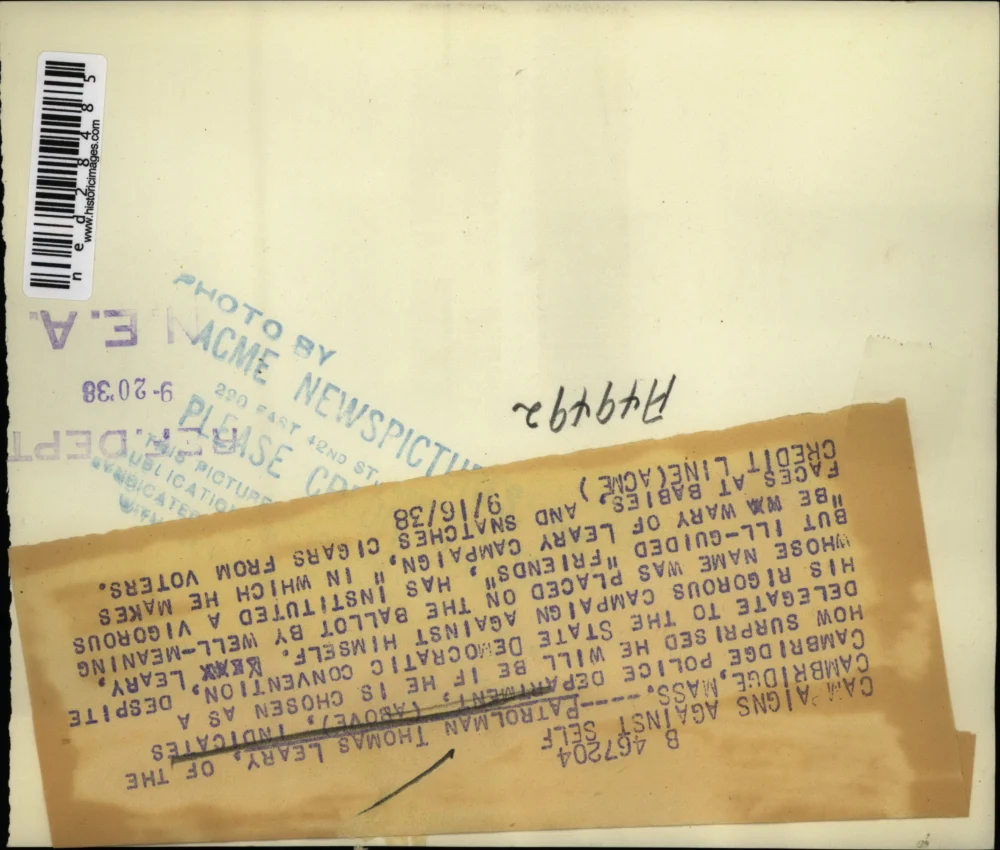 n e d 2 8 4 8 5
www.historicimages.com
N.E.A.
9-20'38
REF.DEPT
PHOTO BY
ACME NEWSPICTU
220 EAST 42ND ST.
PLEASE CR
THIS PICTURE
PUBLICATIO
SYNDICATE
A49492
B 467204
CAM AIGNS AGAINST SELF
CAMBRIDGE, MASS.----PATROLMAN THOMAS LEARY, OF THE
CAMBRIDGE POLICE DEPARTMENT, (ABOVE), INDICATES
HOW SURPRISED HE WILL BE IF HE IS CHOSEN AS A
DELEGATE TO THE STATE DEMOCRATIC CONVENTION, DESPITE
HIS RIGOROUS CAMPAIGN AGAINST HIMSELF. LEARY,
WHOSE NAME WAS PLACED ON THE BALLOT BY WELL-MEANING
BUT ILL-GUIDED "FRIENDS", HAS INSTITUTED A VIGOROUS
"BE WARY OF LEARY CAMPAIGN," IN WHICH HE MAKES
FACES AT BABIES, AND SNATCHES CIGARS FROM VOTERS.
CREDIT LINE(ACME) 9/16/38